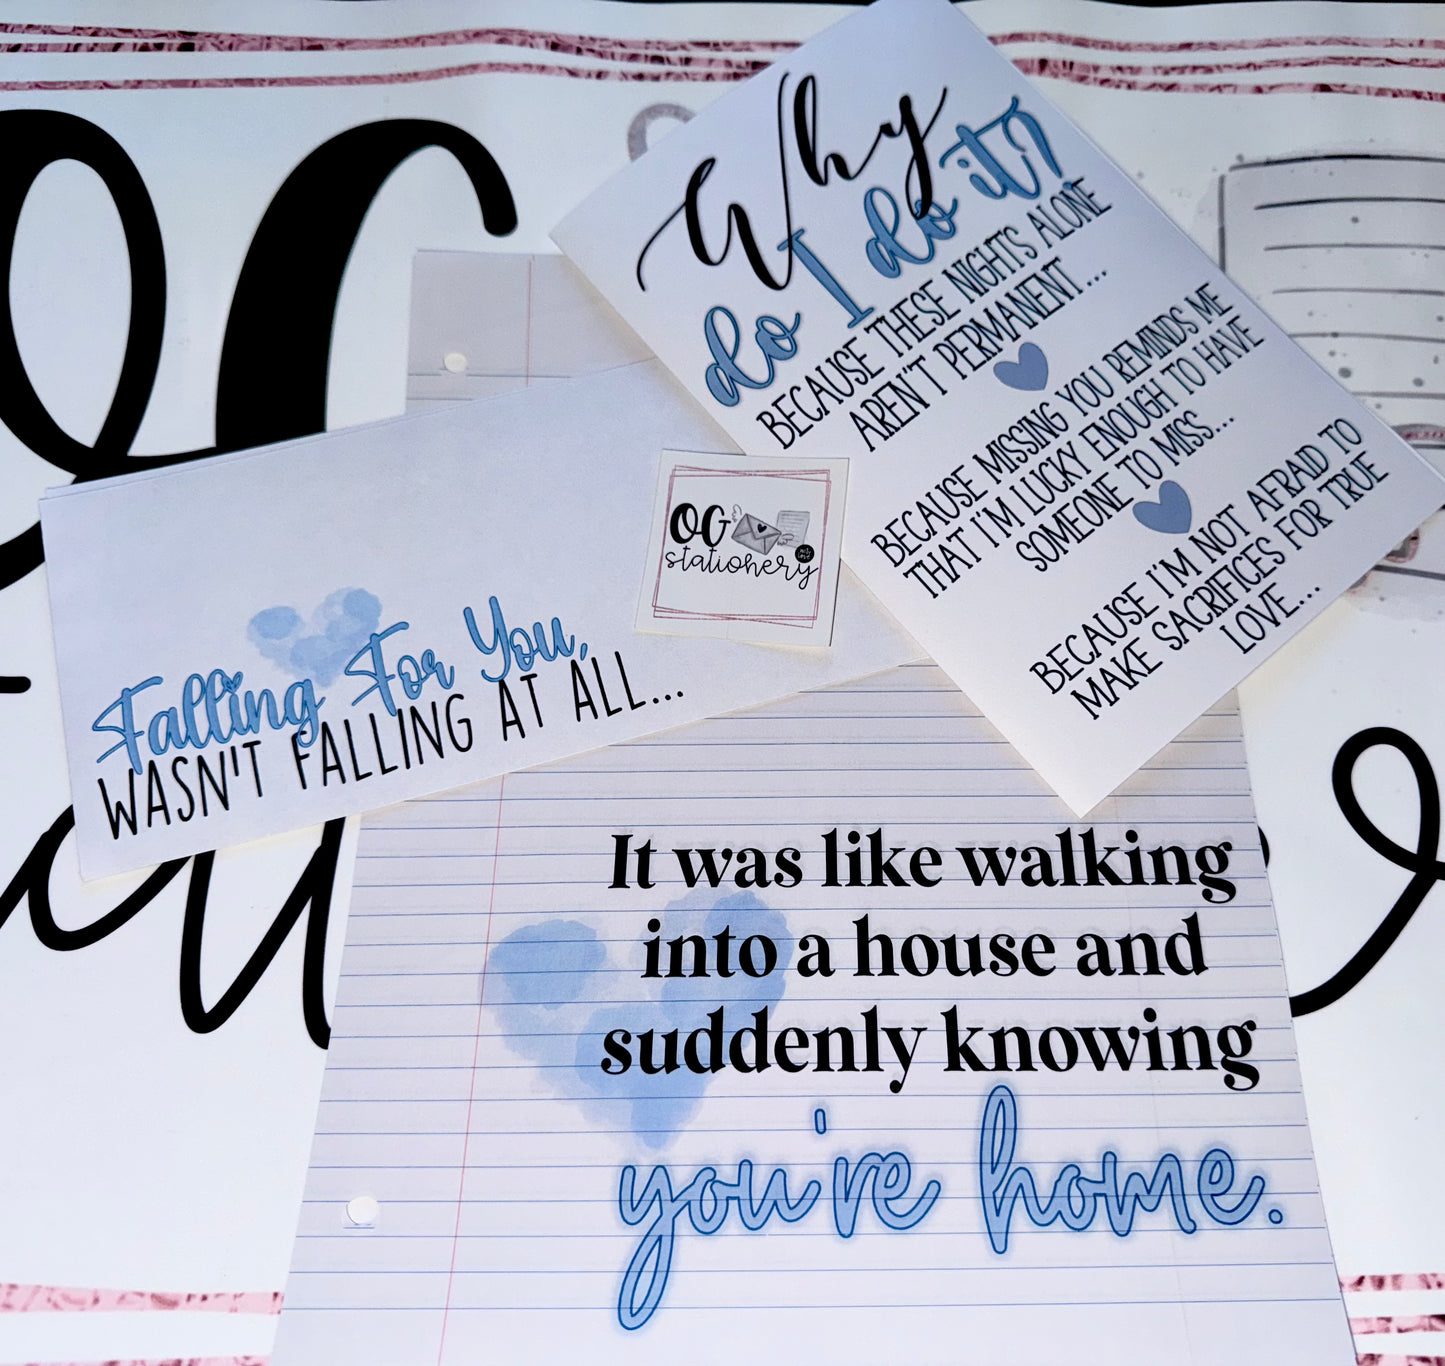 Why
do I do it?
BECAUSE THESE NIGHTS ALONE
AREN'T PERMANENT...
BECAUSE MISSING YOU REMINDS ME
THAT I'M LUCKY ENOUGH TO HAVE
SOMEONE TO MISS...
BECAUSE I'M NOT AFRAID TO
MAKE SACRIFICES FOR TRUE
LOVE...
OG
stationery
Falling For You,
WASN'T FALLING AT ALL...
It was like walking
into a house and
suddenly knowing
you're home.